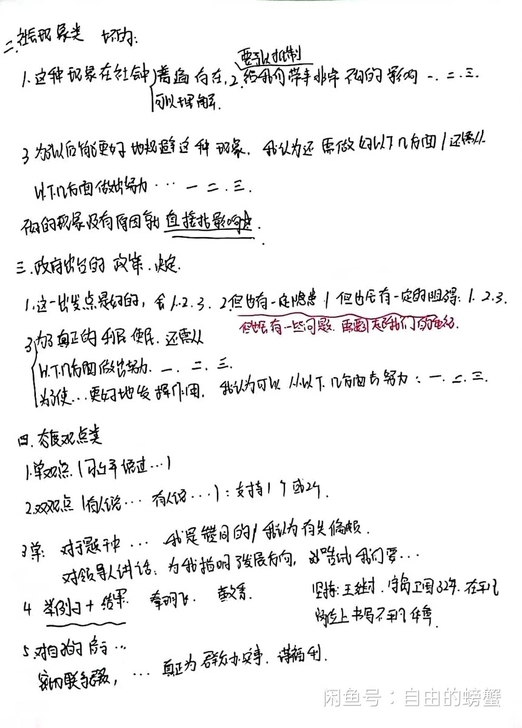 二.社会现象类 坏的:
要予以抵制
1.这种现象在社会中 普遍存在, 2.给我们带来非常不好的影响 一.二.三.
可以理解.
3 为以后能更好地规避这种现象. 我认为还需做好以下几方面/还需从
以下几方面做出努力… 一 二.三.
不好的现象没有原因就直接指影响.
三.政府出台的政策.决定.
1.这一出发点是好的, 会1.2.3. 2.但也有一定隐患/但也会有一定的阻碍: 1.2.3.
但也会有一些问题.
3 为了真正的利民便民. 还需从
以下几方面做出努力. 一.二.三.
为了使…更好地发挥作用. 我认为可以从以下几方面去努力: 一.二.三.
四.态度观点类
1.单观点 (
2.双观点 (有人说… 有人说…): 支持1个或2个.
3 单: 对于题干中… 我是赞同的/我认为有失偏颇.
对领导人讲话: 为我指明了发展方向, 尝试我们要…
4 举例子+结果. 李明飞. 黄文秀. 坚持: 王继才. 守岛卫国32年. 在平凡
岗位上书写不平凡
5.对自我的启示…
密切联系群众, … 真正为群众办实事. 谋福利.
闲鱼号：自由的螃蟹